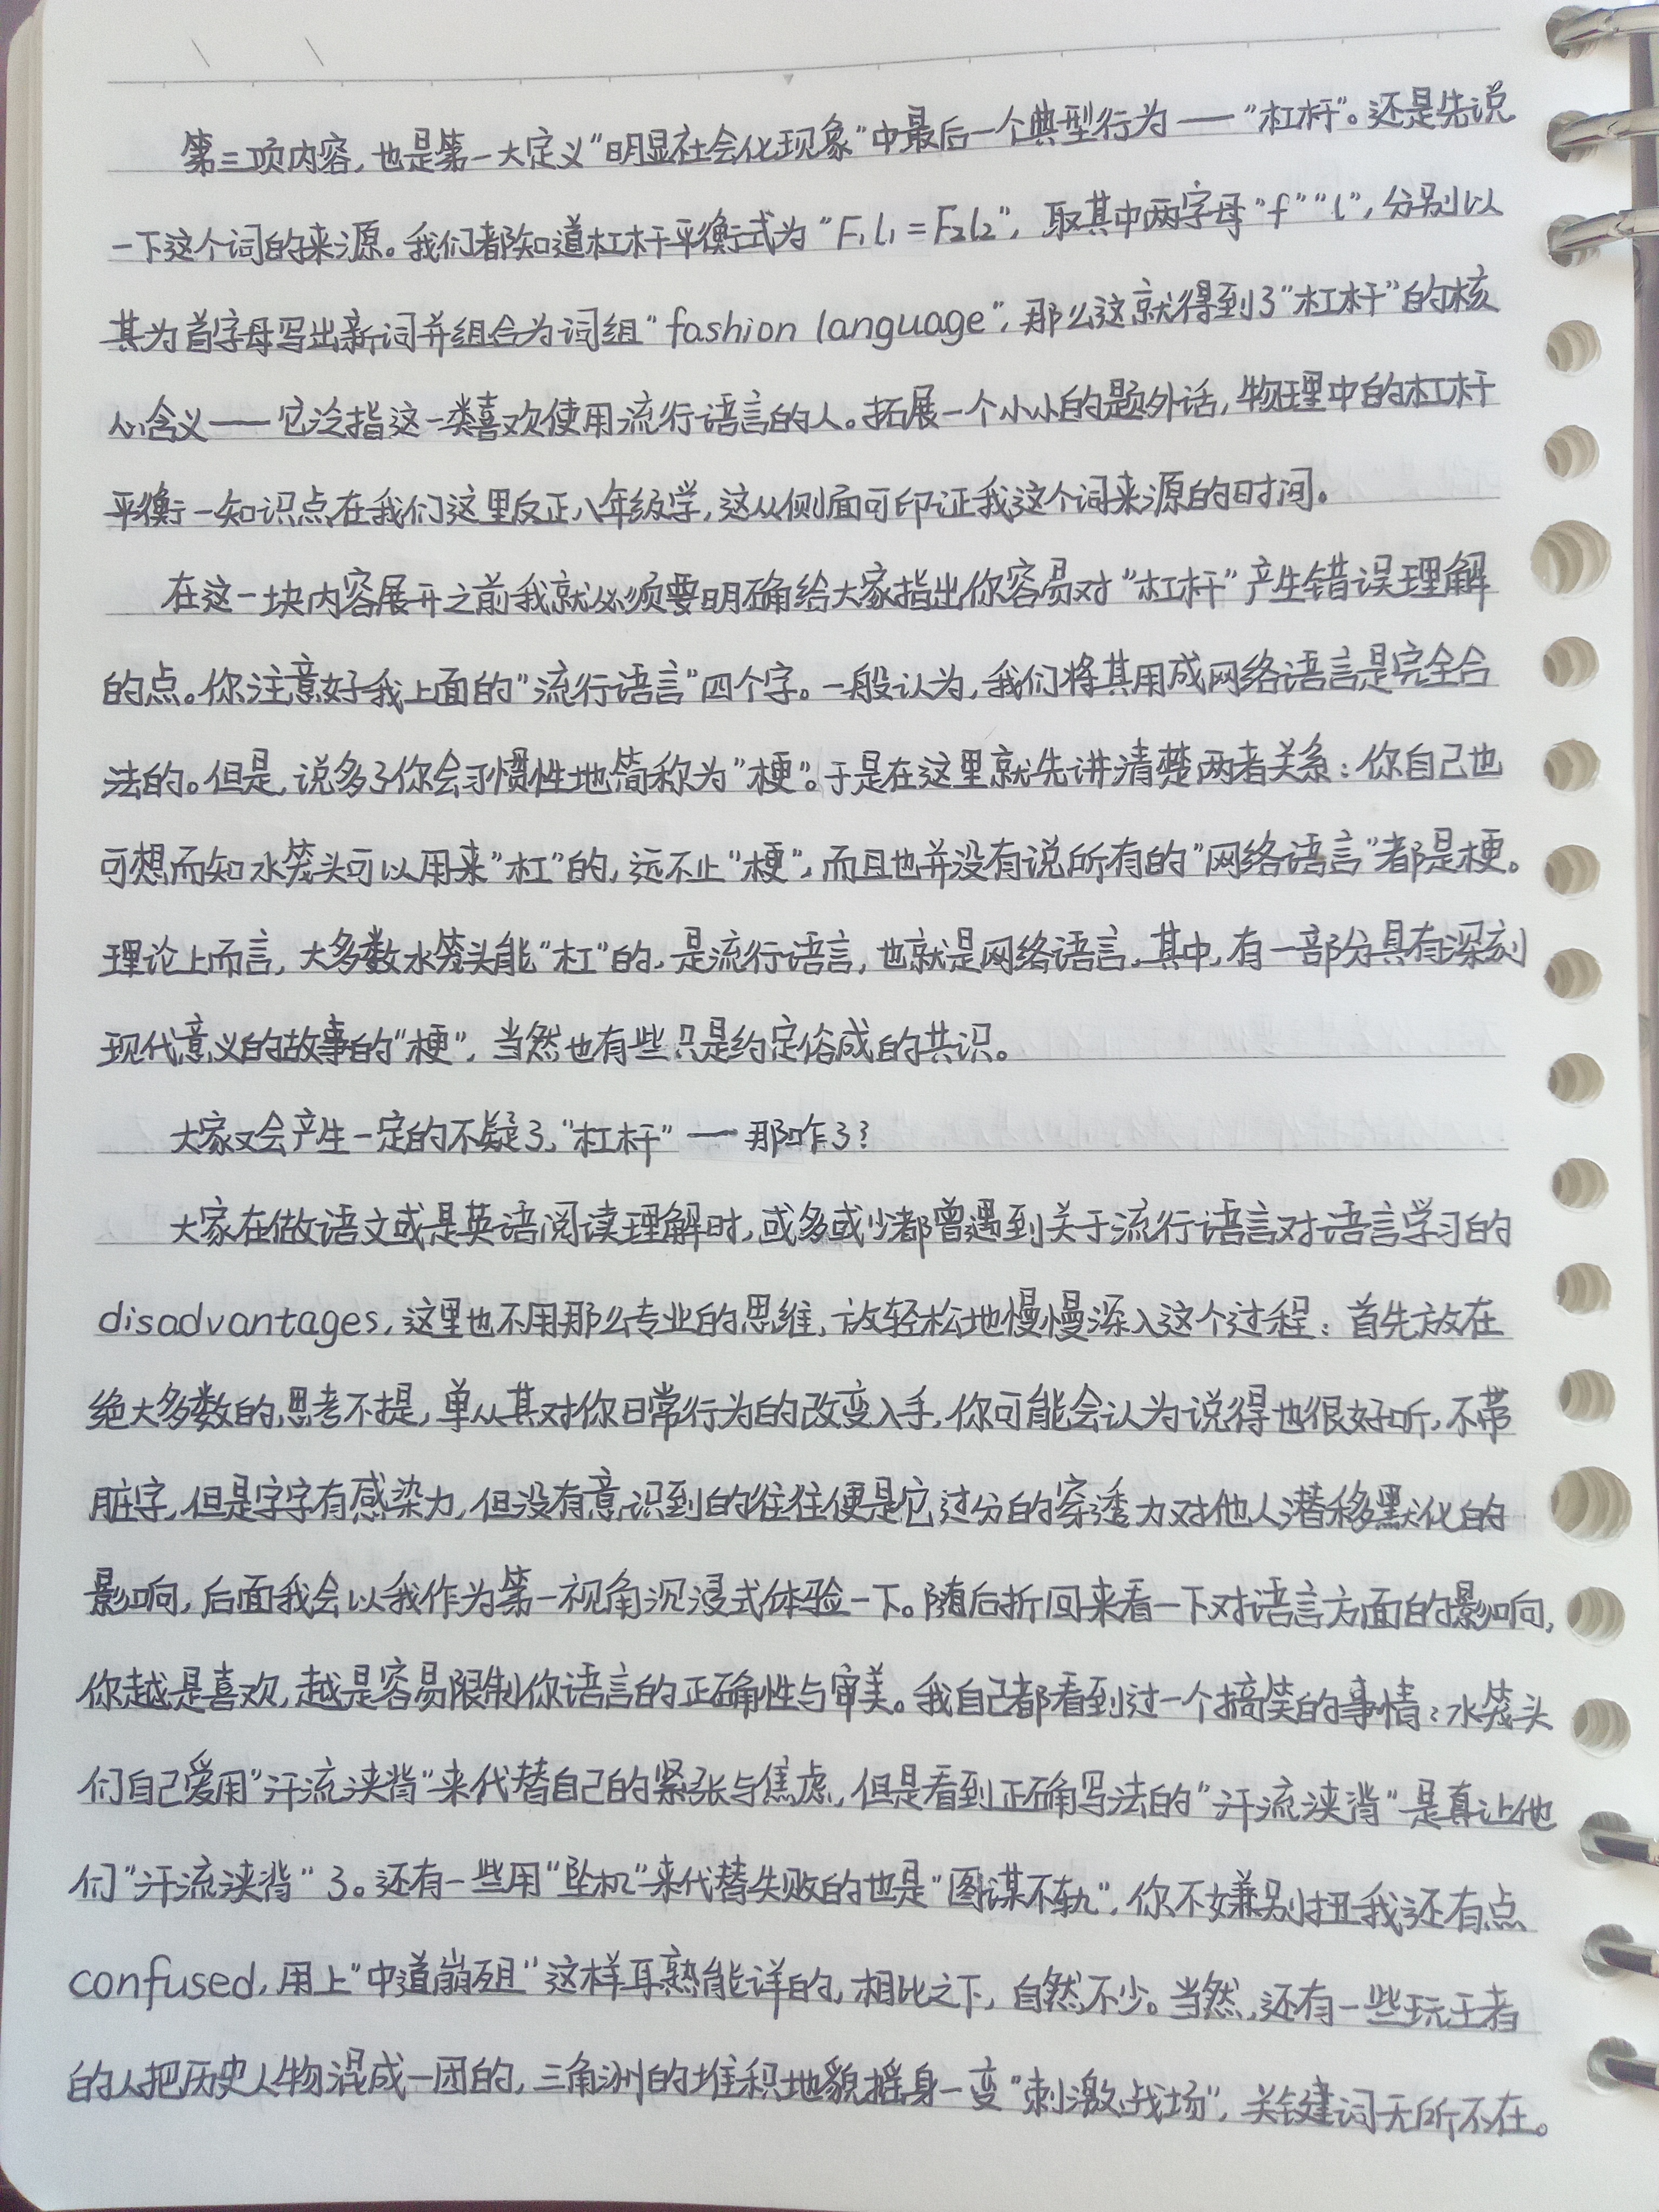 第三项内容,也是第一大定义“明显社会化现象”中最后一个典型行为——“杠杆”。还是先说
一下这个词的来源。我们都知道杠杆平衡式为“F₁l₁=F₂l₂”,取其中两字母“f”“l”,分别以
其为首字母写出新词并组合为词组“fashion language”,那么这就得到了“杠杆”的核
心含义——它泛指这一类喜欢使用流行语言的人。拓展一个小小的题外话,物理中的杠杆
平衡一知识点在我们这里反正八年级学,这从侧面可印证我这个词来源的时间。
在这一块内容展开之前我就必须要明确给大家指出你容易对“杠杆”产生错误理解
的点。你注意好我上面的“流行语言”四个字。一般认为,我们将其用成网络语言是完全合
法的。但是,说多了你会习惯性地简称为“梗”。于是在这里就先讲清楚两者关系:你自己也
可想而知水笼头可以用来“杠”的,远不止“梗”,而且也并没有说所有的“网络语言”都是梗。
理论上而言,大多数水笼头能“杠”的,是流行语言,也就是网络语言,其中,有一部分具有深刻
现代意义的故事的“梗”,当然也有些只是约定俗成的共识。
大家又会产生一定的不疑了,“杠杆”——那咋了?
大家在做语文或是英语阅读理解时,或多或少都曾遇到关于流行语言对语言学习的
disadvantages,这里也不用那么专业的思维,放轻松地慢慢深入这个过程:首先放在
绝大多数的思考不提,单从其对你日常行为的改变入手,你可能会认为说得也很好听,不带
脏字,但是字字有感染力,但没有意识到的往往便是它过分的穿透力对他人潜移默化的
影响,后面我会以我作为第一视角沉浸式体验一下。随后折回来看一下对语言方面的影响,
你越是喜欢,越是容易限制你语言的正确性与审美。我自己都看到过一个搞笑的事情:水笼头
们自己爱用“汗流浃背”来代替自己的紧张与焦虑,但是看到正确写法的“汗流浃背”是真让他
们“汗流浃背”了。还有一些用“坠机”来代替失败的也是“图谋不轨”,你不嫌别扭我还有点
confused,用上“中道崩殂”这样耳熟能详的,相比之下,自然不少。当然,还有一些玩王者
的人把历史人物混成一团的,三角洲的堆积地貌摇身一变“刺激战场”,关键词无所不在。